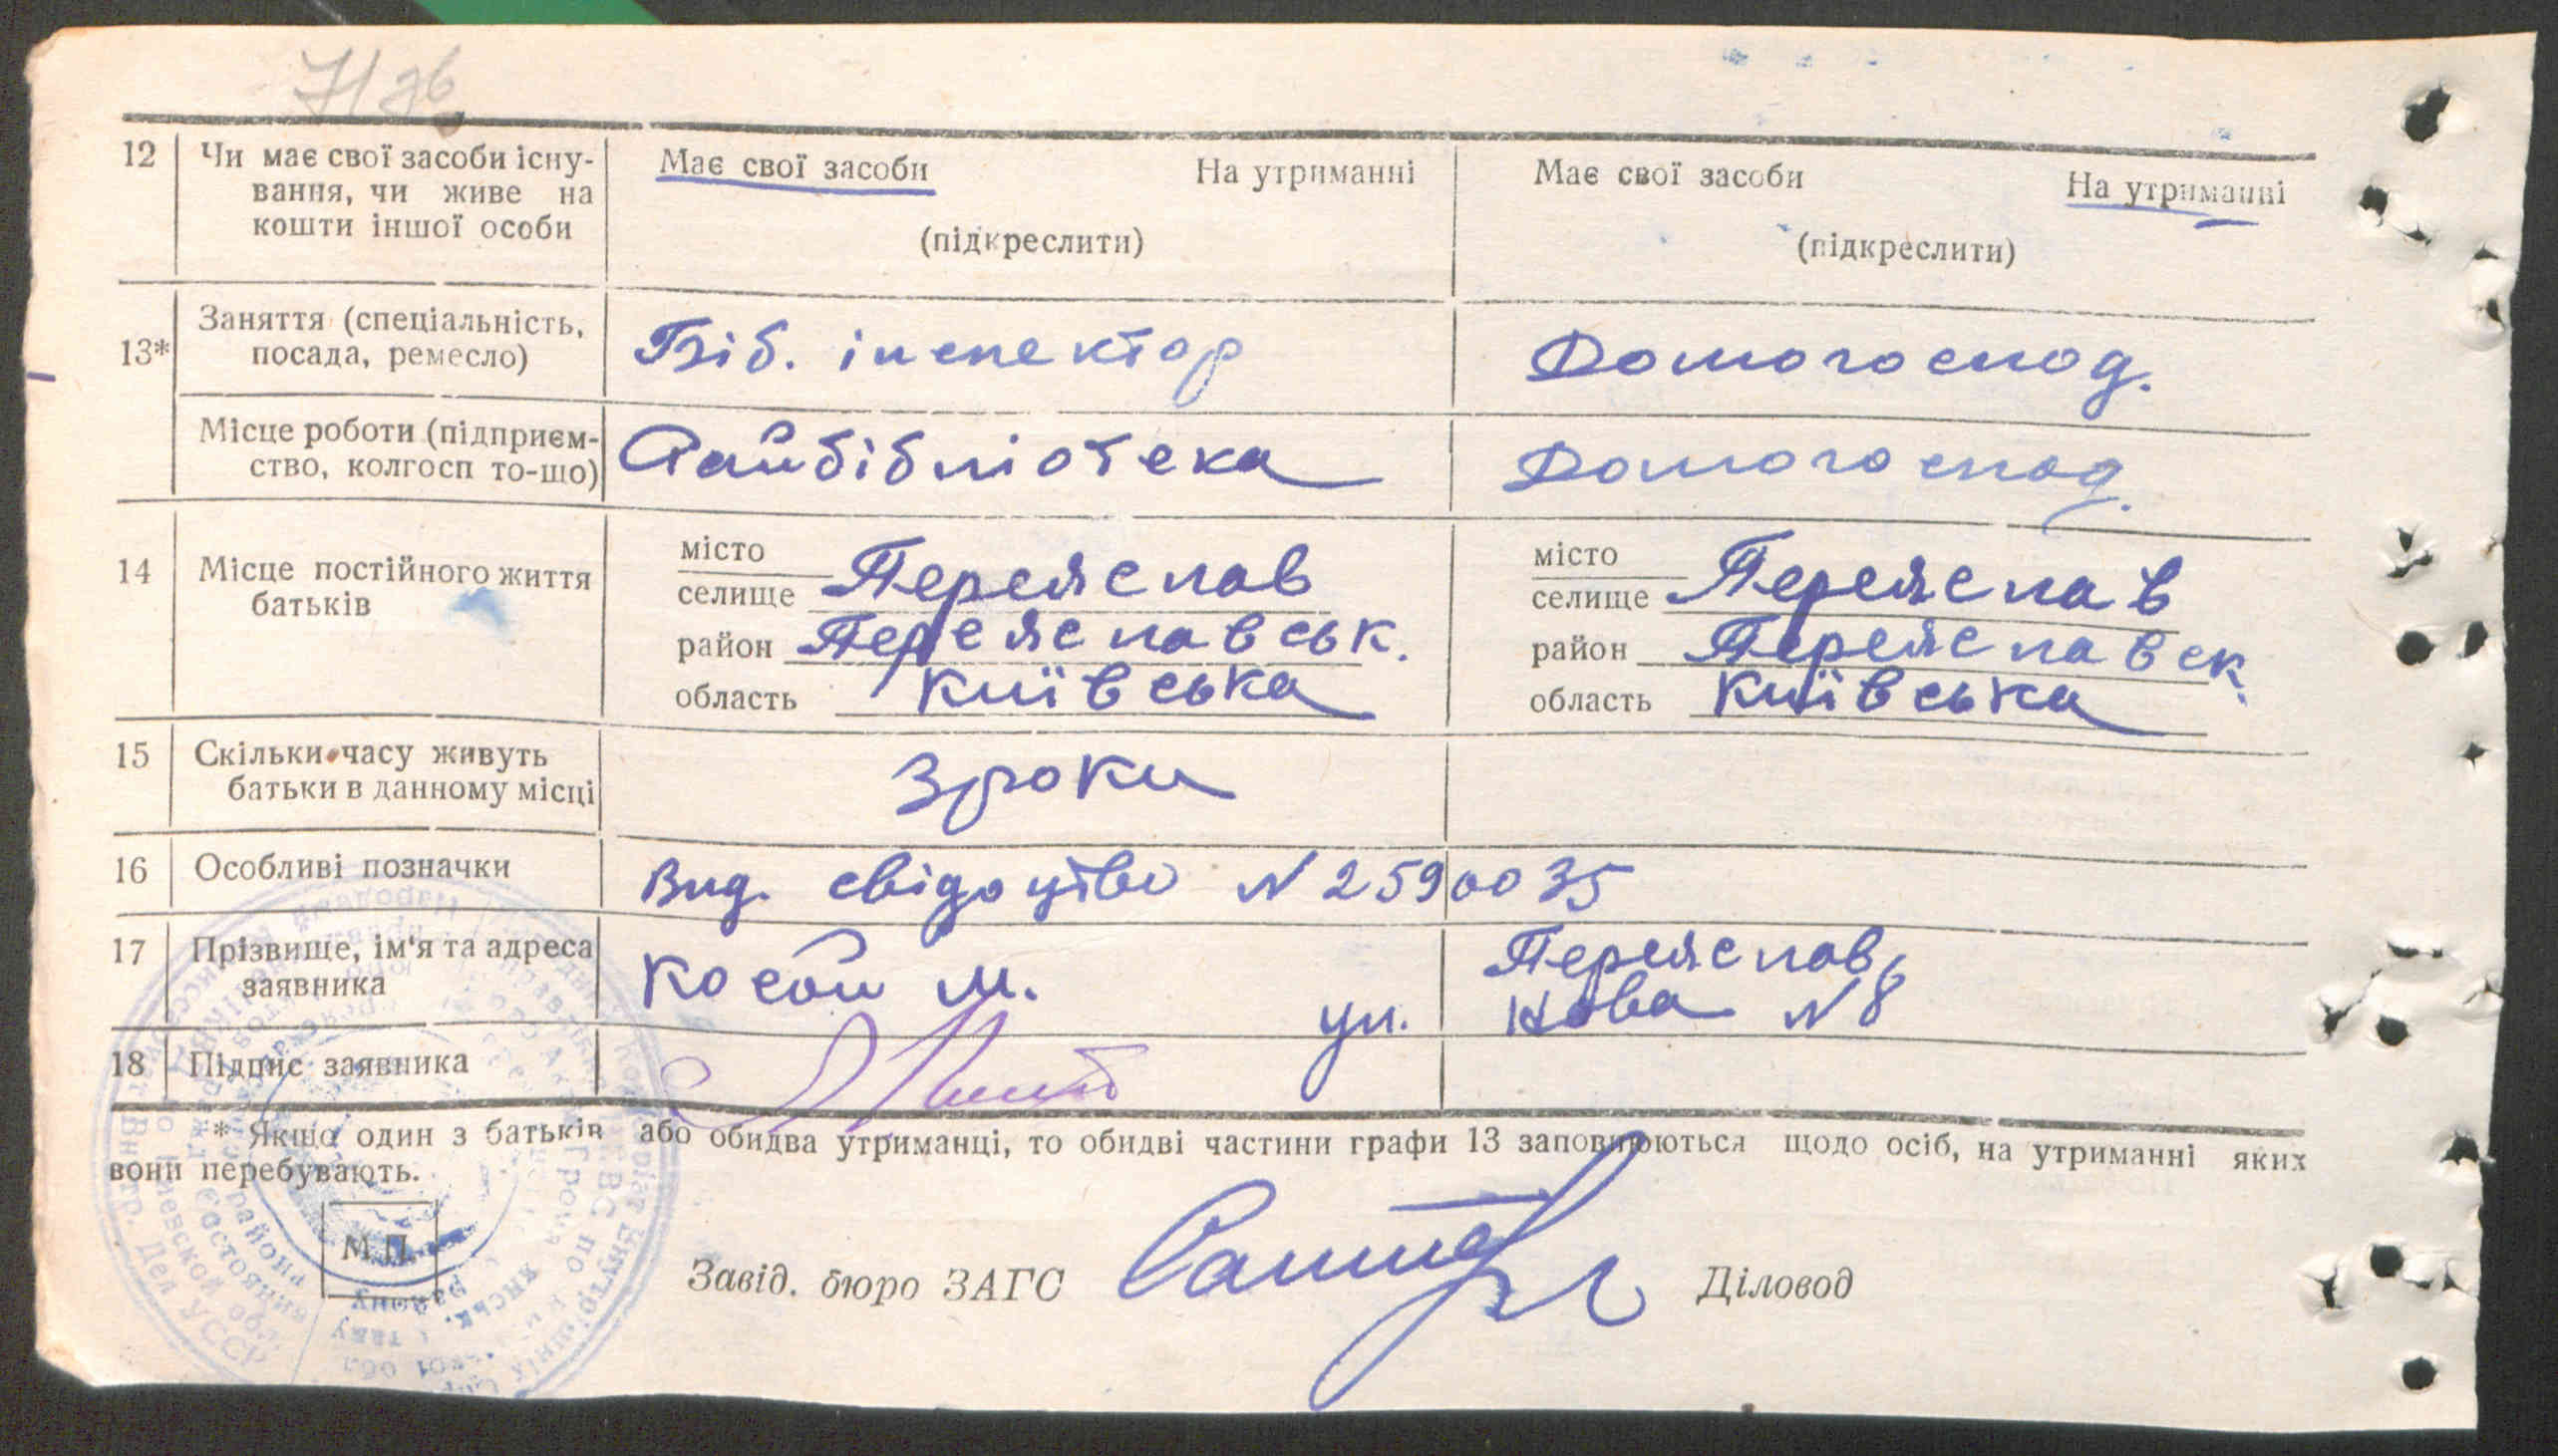 12 Чи має свої засоби існу- Має свої засоби На утриманні Має свої засоби На утриманні
вання, чи живе на
кошти іншої особи (підкреслити) (підкреслити)
13* Заняття (спеціальність, посада, ремесло) Біб. інспектор Домогоспод.
Місце роботи (підприєм- Райбібліотека Домогоспод.
ство, колгосп то-що)
14 Місце постійного життя місто Переяслав місто Переяслав
батьків селище селище
район Переяславськ. район Переяславск.
область Київська область Київська
15 Скільки часу живуть 3 роки
батьки в данному місці
16 Особливі позначки Вид. свідоцтво N 2590035
17 Прізвище, ім'я та адреса Косой М. Переяслав,
заявника ул. Нова N 8
18 Підпис заявника
* Якщо один з батьків або обидва утриманці, то обидві частини графи 13 заповнюються щодо осіб, на утриманні яких
вони перебувають.
М.П.
Завід. бюро ЗАГС Діловод